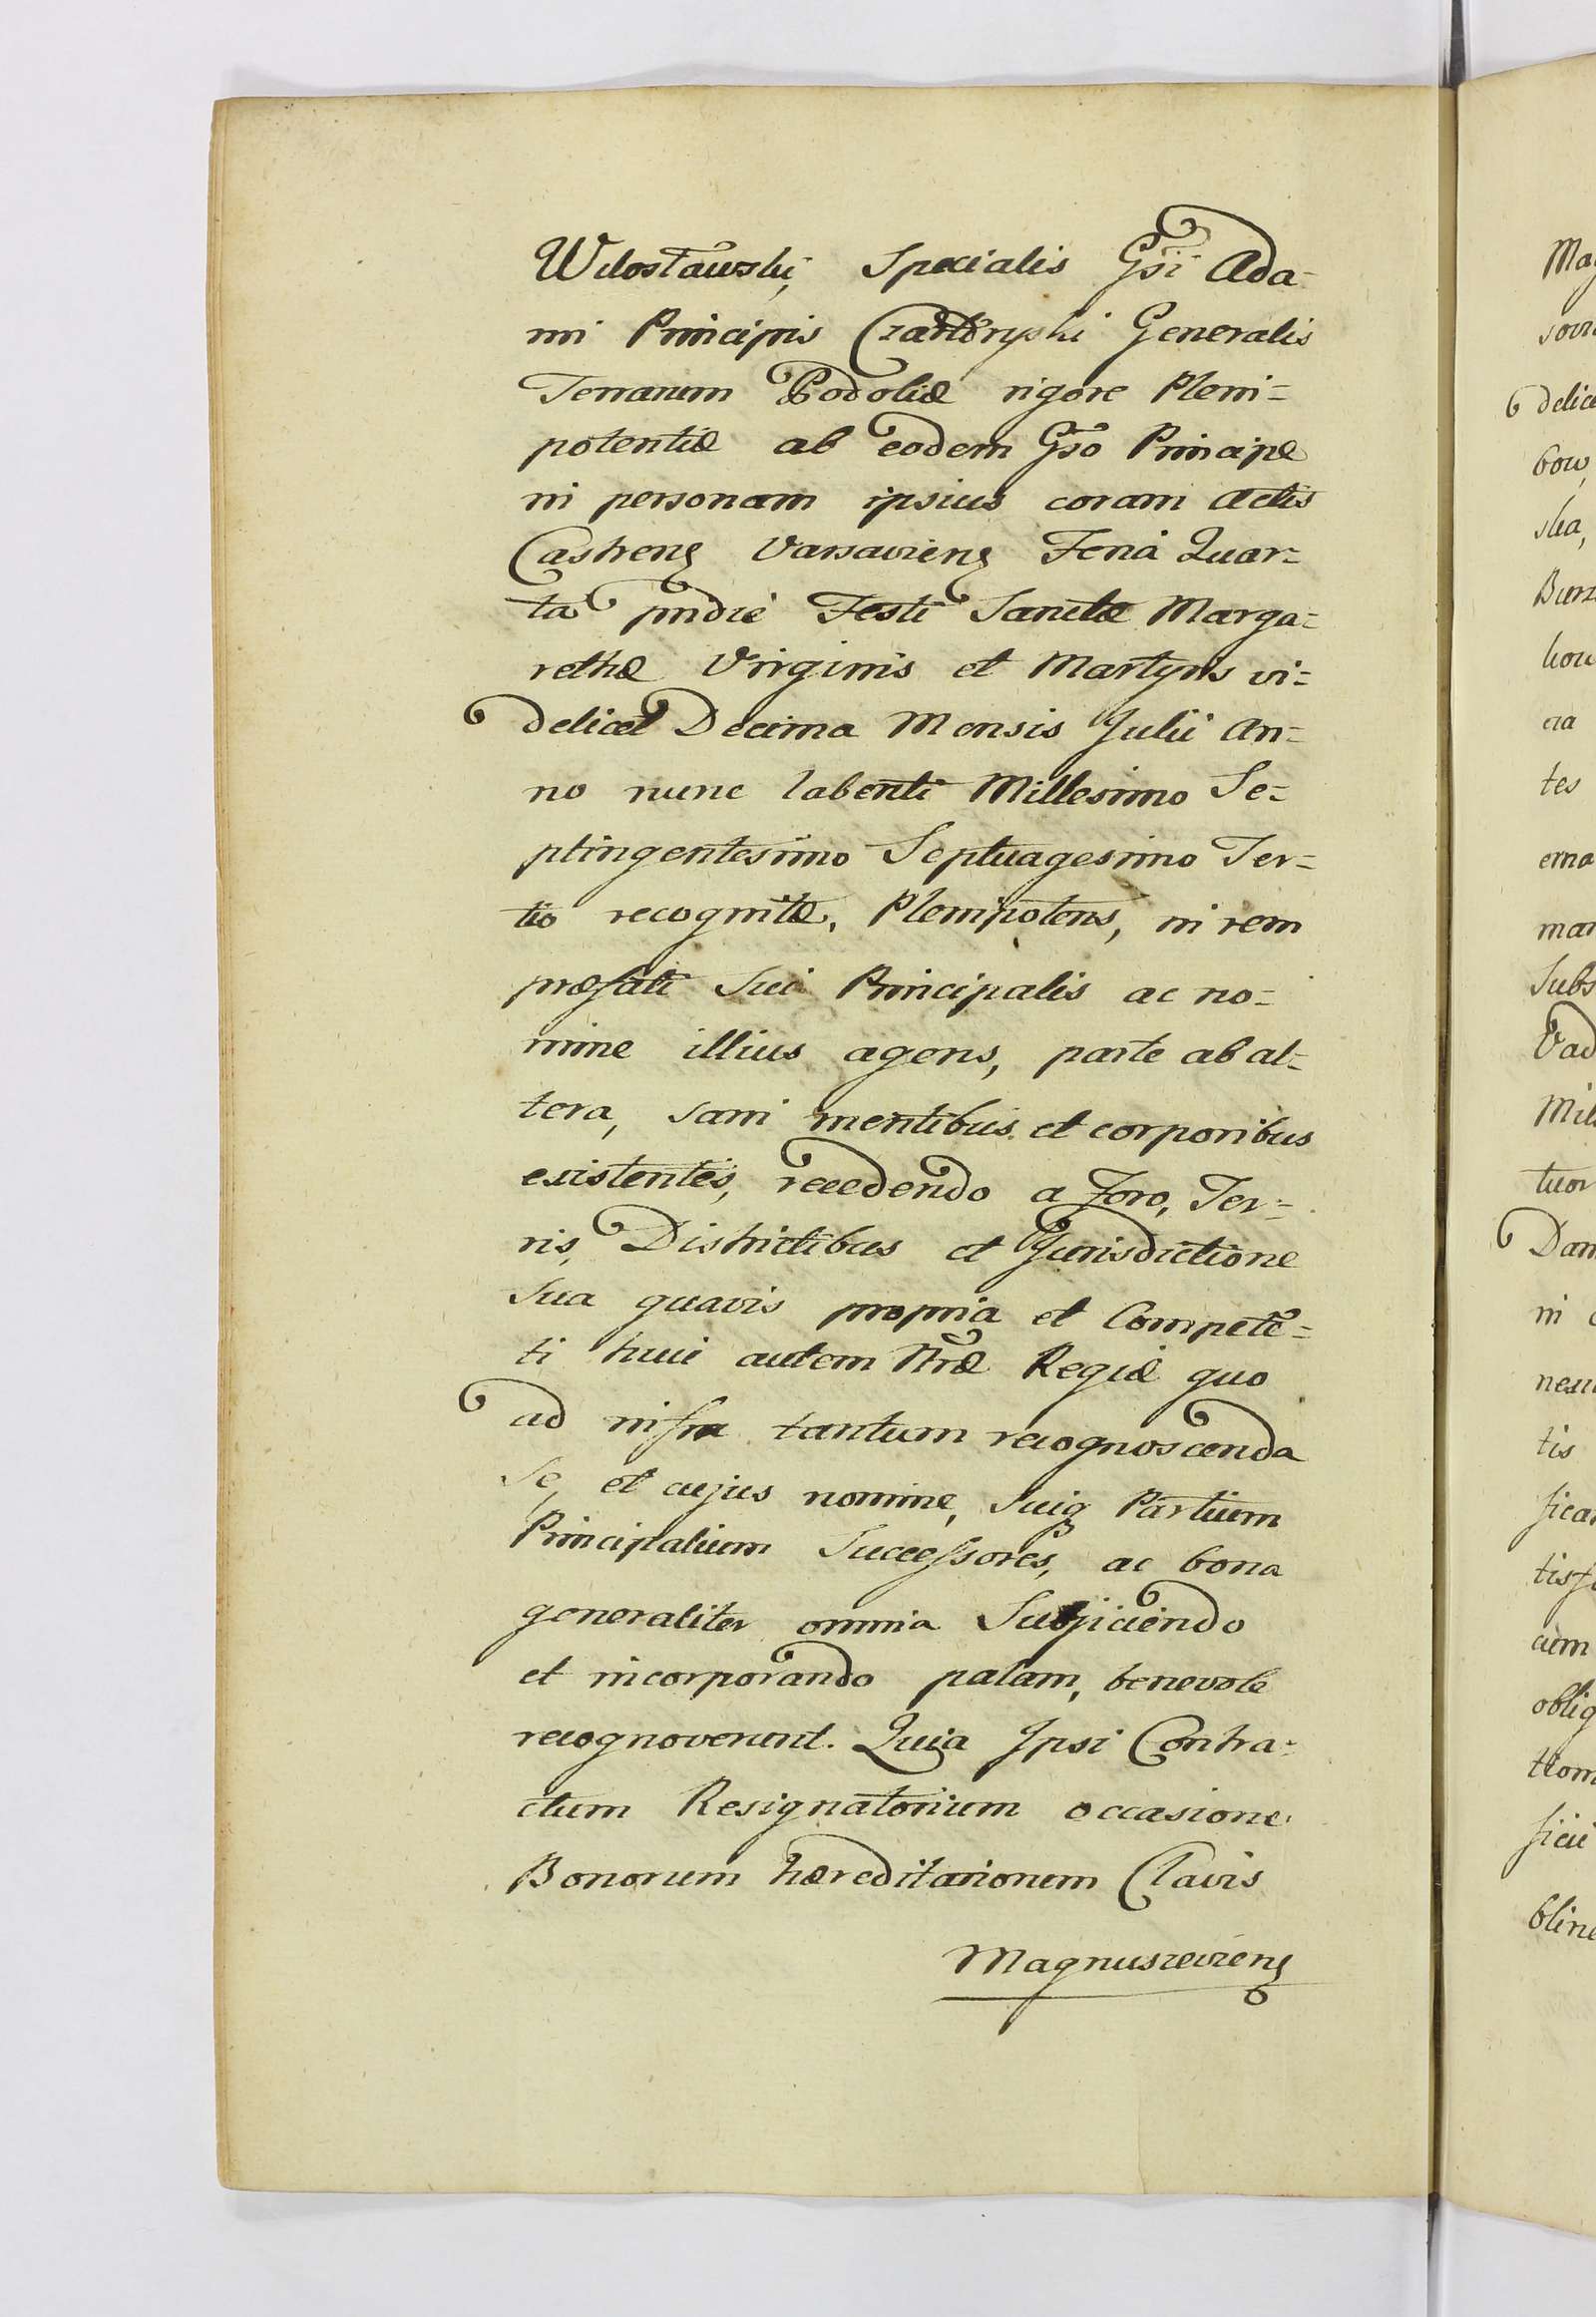 Wilostawski, Specialis Gsi Ada-
mi Principis Czartoryski Generalis
Terrarum Podoliæ vigore Pleni=
potentiæ ab eodem Gso Principe
in personam ipsius coram Actis
Castren Varsavien Feria Quar=
ta pridie Festi Sanctæ Marga=
rethæ Virginis et Martyris vi=
delicet Decima Mensis Julii An=
no nunc labenti Millesimo Se=
ptingentesimo Septuagesimo Ter=
tio recognitæ, Plenipotens, in rem
præfati Sui Principalis ac no=
mine illius agens, parte ab al=
tera, sani mentibus et corporibus
existentes, recedendo a Foro, Ter=
ris, Districtibus et Jurisdictione
Sua quavis propria et Competē=
ti huic autem Nræ Regiæ quo
ad infra tantum recognoscenda
Se, et cujus nomine, Suiq Partium
Principalium Successores, ac bona
generaliter omnia Subjiciendo
et incorporando palam, benevole
recognoverunt. Quia Ipsi Contra=
ctum Resignatorium occasione
Bonorum hæreditariorum Clavis
Magnuszewien
Ma
delic
bow,
ska,
Burz
era
tes
erna
man
Subs
Vad
Mil
tuor
Dam
in
tis
fica
tisf
cum
oblig